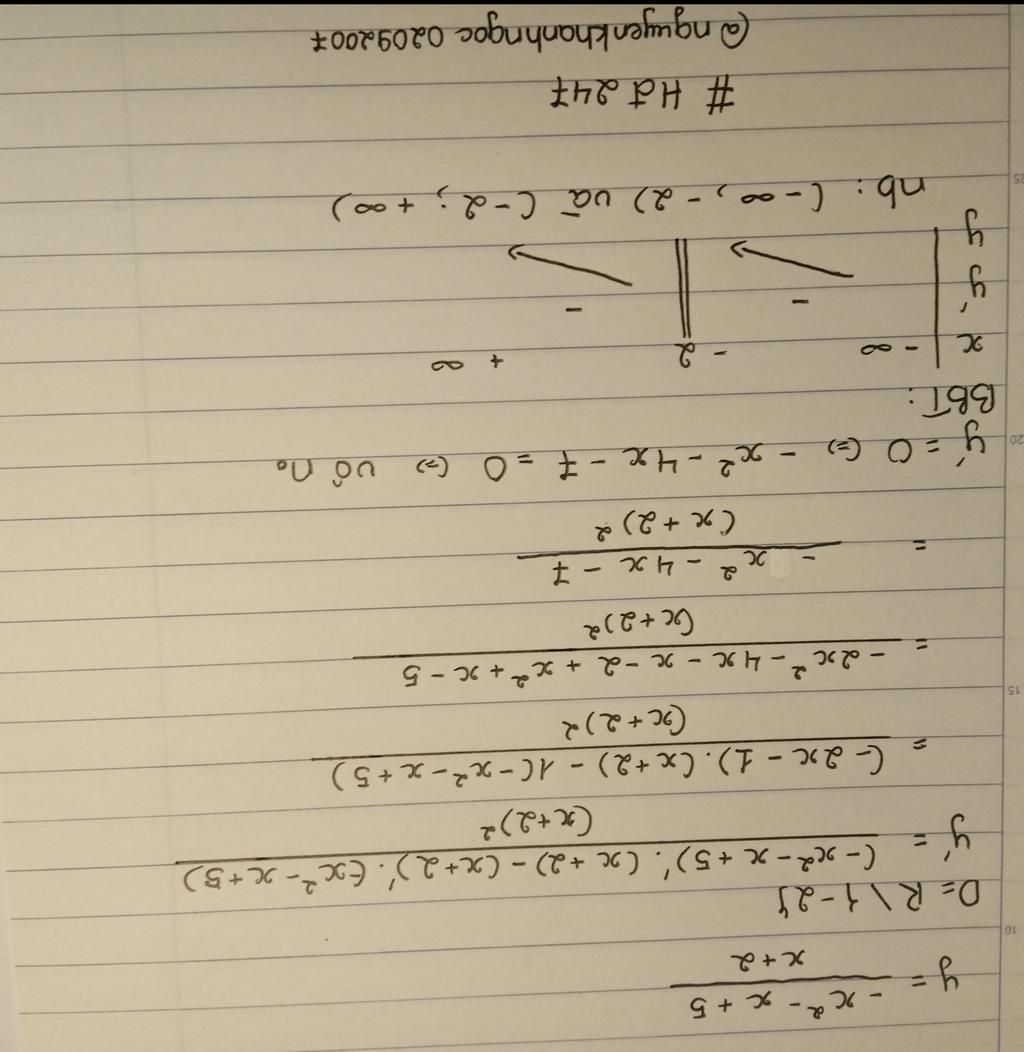 y = (-x² - x + 5) / (x + 2)
D = R \ {-2}
y' = ((-x² - x + 5)' . (x + 2) - (x + 2)' . (-x² - x + 5)) / (x + 2)²
= ((-2x - 1) . (x + 2) - 1(-x² - x + 5)) / (x + 2)²
= (-2x² - 4x - x - 2 + x² + x - 5) / (x + 2)²
= (-x² - 4x - 7) / (x + 2)²
y' = 0 (=) -x² - 4x - 7 = 0 (=) vô no
BBT :
x | -∞ -2 + ∞
y' | - || -
y | ↘ || ↘
nb : (-∞, -2) và (-2 ; +∞)
# Hđ 247
@nguyenkhanhngoc02092007